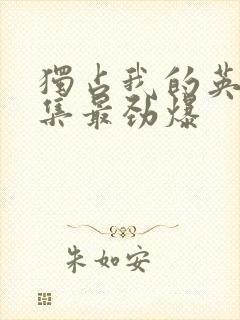 獨占我的英
集最劲爆
朱如安